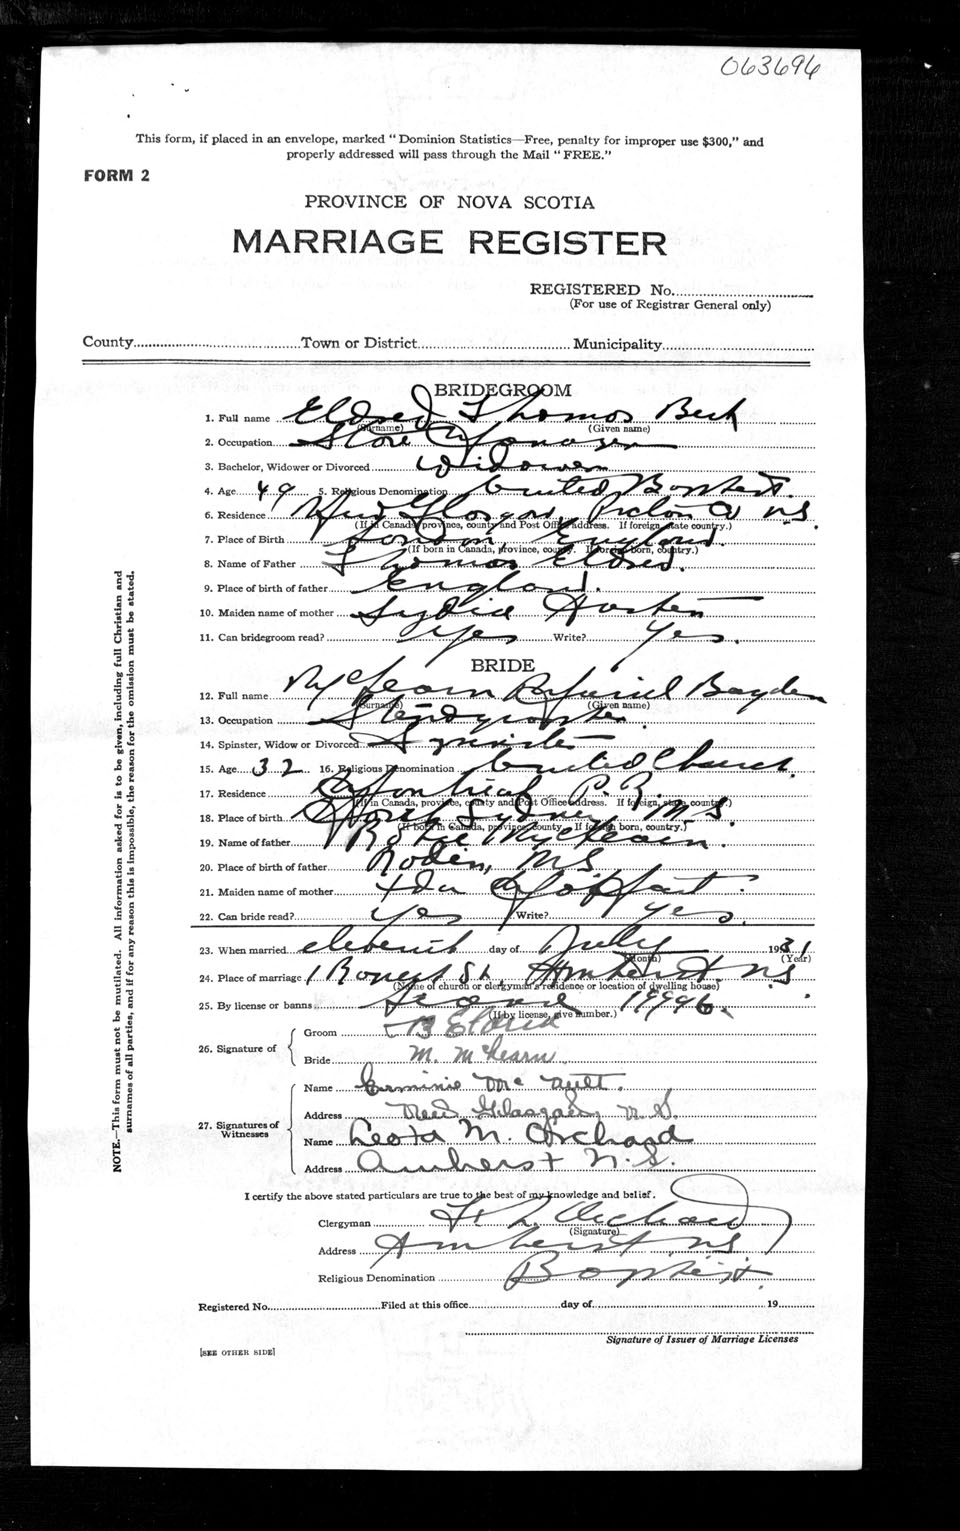 063696
This form, if placed in an envelope, marked "Dominion Statistics—Free, penalty for improper use $300," and
properly addressed will pass through the Mail "FREE."
FORM 2
PROVINCE OF NOVA SCOTIA
MARRIAGE REGISTER
REGISTERED No.
(For use of Registrar General only)
County Town or District Municipality
BRIDEGROOM
1. Full name Eldred Thomas
(Surname) (Given name)
2. Occupation Store Manager
3. Bachelor, Widower or Divorced Widower
4. Age 49 5. Religious Denomination United Baptist.
6. Residence New Glasgow, Pictou Co N.S.
(If in Canada, province, county and Post Office address. If foreign, state country.)
7. Place of Birth London, England.
(If born in Canada, province, county. If foreign born, country.)
8. Name of Father Thomas Eldred.
9. Place of birth of father England.
10. Maiden name of mother Lydia
11. Can bridegroom read? Yes Write? Yes.
BRIDE
12. Full name
(Surname) (Given name)
13. Occupation Stenographer.
14. Spinster, Widow or Divorced Spinster
15. Age 32 16. Religious Denomination United Church.
17. Residence Montreal P.Q.
(If in Canada, province, county and Post Office address. If foreign, state country.)
18. Place of birth North Sydney N.S.
(If born in Canada, province, county. If foreign born, country.)
19. Name of father
20. Place of birth of father N.S.
21. Maiden name of mother Ida
22. Can bride read? Yes Write? Yes.
23. When married eleventh day of July 1931
(Month) (Year)
24. Place of marriage 1 St. Amherst. N.S.
(Name of church or clergyman's residence or location of dwelling house)
25. By license or banns License 19996.
(If by license, give number.)
26. Signature of
Groom B Eldred
Bride M. McLearn
27. Signatures of
Witnesses
Name Erminie
Address New Glasgow, N.S.
Name Leota M. Orchard
Address Amherst N.S.
I certify the above stated particulars are true to the best of my knowledge and belief.
Clergyman Orchard
(Signature)
Address Amherst N.S.
Religious Denomination Baptist.
Registered No. Filed at this office day of 19
Signature of Issuer of Marriage Licenses
[SEE OTHER SIDE]
NOTE.—This form must not be mutilated. All information asked for is to be given, including full Christian and
surnames of all parties, and if for any reason this is impossible, the reason for the omission must be stated.